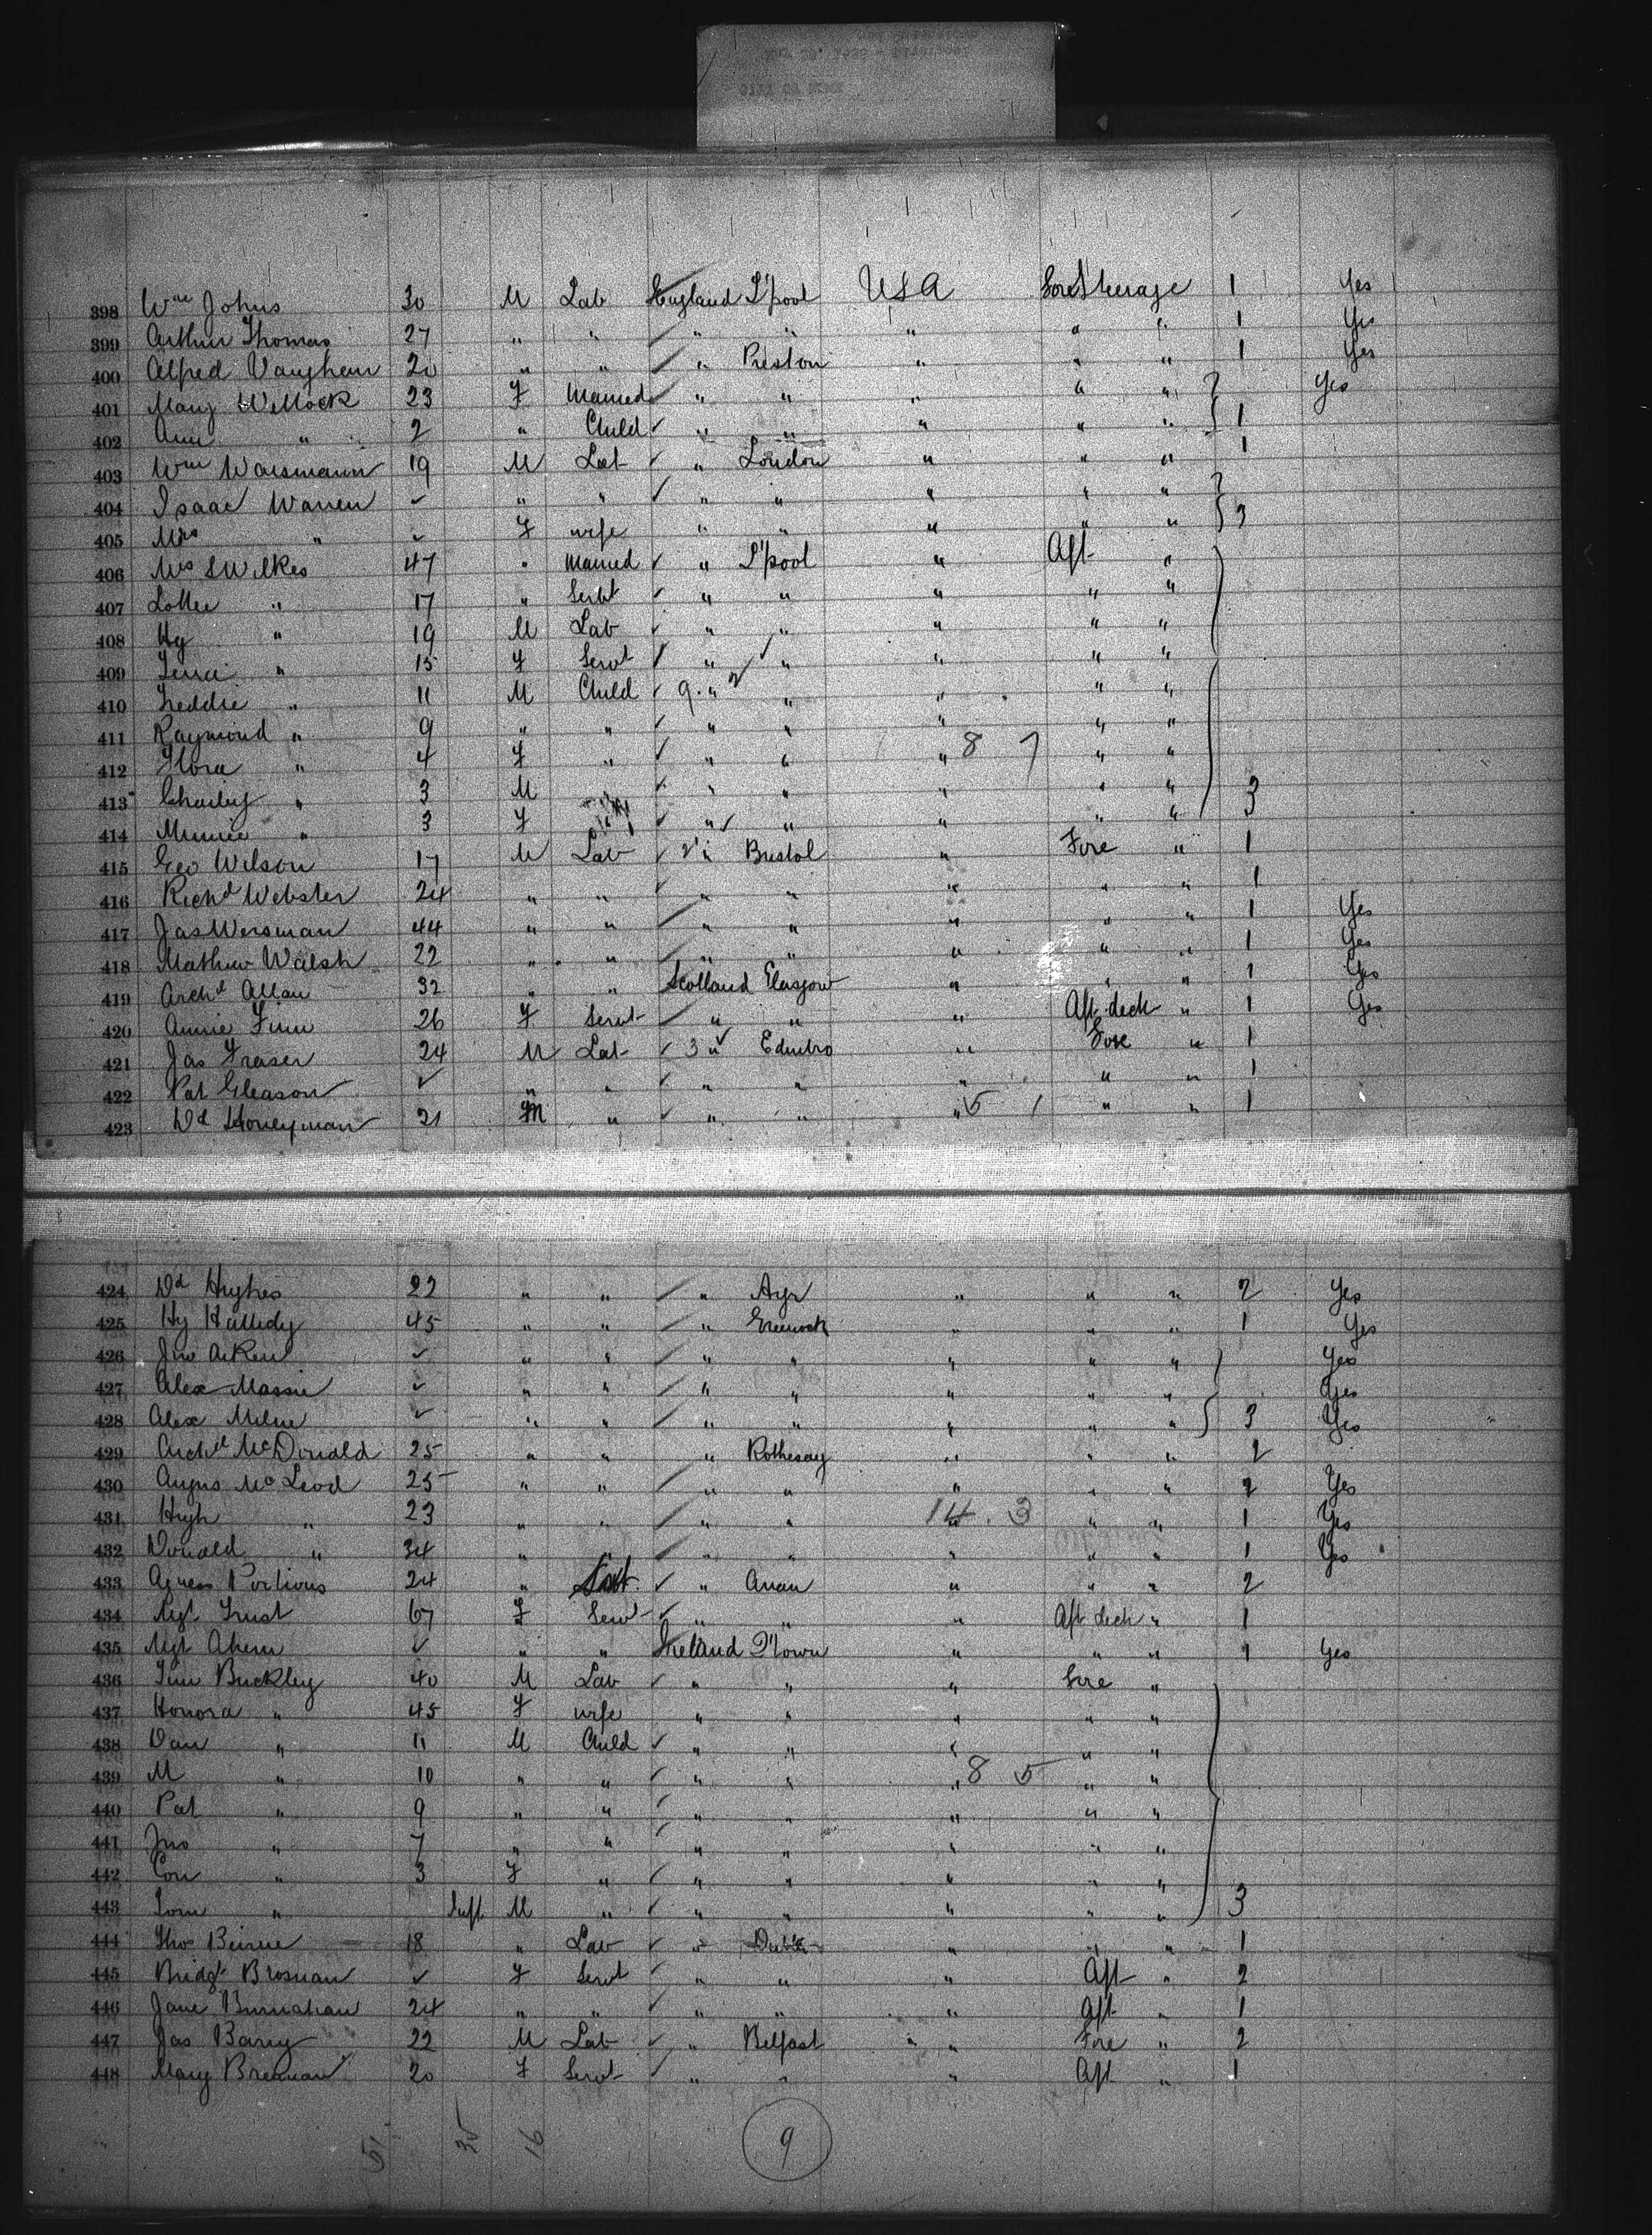 398 Wm Johns 30 M Lab England L'pool USA Fore Steerage 1 Yes
399 Arthur Thomas 27 " " " " " " " 1 Yes
400 Alfred Vaughan 20 " " " Preston " " " 1 Yes
401 Mary Wellock 23 F Married " " " " " Yes
402 Ann " 2 " Child " " " " " 1
403 Wm Waismann 19 M Lab " London " " " 1
404 Isaac Warren ✓ " " " " " " "
405 Mrs " ✓ F wife " " " " " 3
406 Mrs S Wilkes 47 " Married " L'pool " Aft "
407 Lottie " 17 " Servt " " " " "
408 Hy " 19 M Lab " " " " "
409 " 15 F Servt " " " " "
410 Freddie " 11 M Child 9 " " " " "
411 Raymond " 9 " " " " " " "
412 Flora " 4 F " " " " 8 7 " "
413 Charley " 3 M " " " " " 3
414 Minnie " 3 F " " " " "
415 Geo Wilson 17 M Lab " Bristol " Fore " 1
416 Richd Webster 24 " " " " " " " 1
417 Jas Wersman 44 " " " " " " " 1 Yes
418 Mathew Walsh 22 " " " " " " " 1 Yes
419 Archd Allan 32 " " Scotland Glasgow " " " 1 Yes
420 Annie Finn 26 F Servt " " " Aft deck " 1 Yes
421 Jas Fraser 24 M Lab 3 " Edinbro " Fore " 1
422 Pat Gleason ✓ " " " " " " " 1
423 Dd Honeyman 21 M " " " " 5 1 " " 1
424 Dd Hughes 22 " " " Ayr " " " 2 Yes
425 Hy Halledy 45 " " " Greenock " " " 1 Yes
426 Jno Aiken ✓ " " " " " " " Yes
427 Alex Massie ✓ " " " " " " " Yes
428 Alex Milne ✓ " " " " " " " 3 Yes
429 Archd McDonald 25 " " " Rothesay " " " 2
430 Angus McLeod 25 " " " " " " " 2 Yes
431 Hugh " 23 " " " " " 14 . 3 " " 1 Yes
432 Donald " 34 " " " " " " " 1 Yes
433 Agness Portious 24 " " Anan " " " 2
434 Mgt Trust 67 F Servt " " " Aft deck " 1
435 Mgt Ahern ✓ " " Ireland Q'town " " " 1 Yes
436 Tim Buckley 40 M Lab " " " Fore "
437 Honora " 45 F wife " " " " "
438 Dan " 11 M Child " " " " "
439 M " 10 " " " " " 8 5 " "
440 Pat " 9 " " " " " " "
441 Jno " 7 " " " " " " "
442 Con " 3 F " " " " " "
443 Tom " Inft M " " " " " " 3
444 Thos Beirne 18 " Lab " Dublin " " " 1
445 Bridgt Brosnan ✓ F Servt " " " Aft " 2
446 Jane 24 " " " " " Aft " 1
447 Jas Barry 22 M Lab " Belfast " Fore " 2
448 Mary Brennan 20 F Servt " " " Aft " 1
51 35 16 9